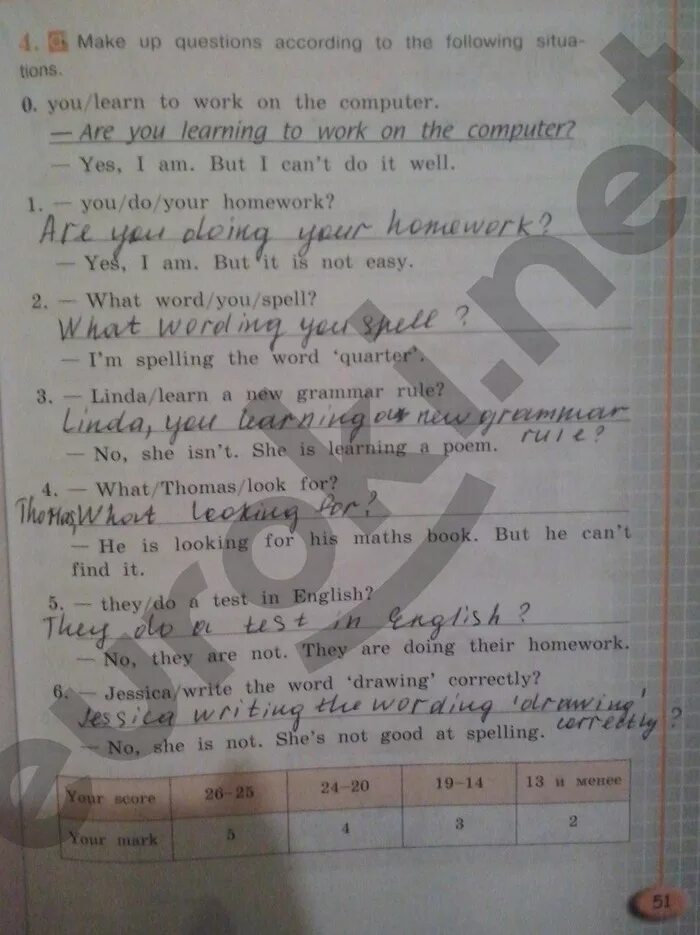 4. Make up questions according to the following situa-
tions.
0. you/learn to work on the computer.
— Are you learning to work on the computer?
— Yes, I am. But I can't do it well.
1. — you/do/your homework?
Are you doing your homework?
— Yes, I am. But it is not easy.
2. — What word/you/spell?
What wording you spell ?
— I'm spelling the word 'quarter'.
3. — Linda/learn a new grammar rule?
Linda, you learning a new grammar
rule?
— No, she isn't. She is learning a poem.
4. — What/Thomas/look for?
Thomas, What looking for?
— He is looking for his maths book. But he can't
find it.
5. — they/do a test in English?
They do a test in English ?
— No, they are not. They are doing their homework.
6. — Jessica/write the word 'drawing' correctly?
Jessica writing the wording 'drawing'
correctly ?
— No, she is not. She's not good at spelling.
Your score 26–25 24–20 19–14 13 и менее
Your mark 5 4 3 2
51
euroki.net